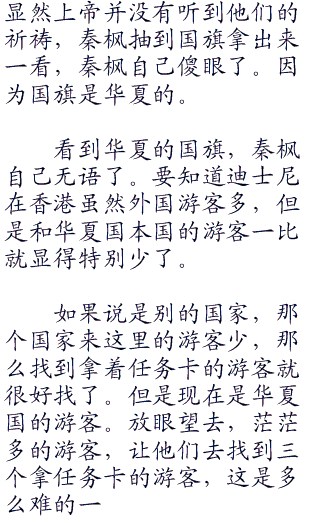 显然上帝并没有听到他们的
祈祷，秦枫抽到国旗拿出来
一看，秦枫自己傻眼了。因
为国旗是华夏的。
看到华夏的国旗，秦枫
自己无语了。要知道迪士尼
在香港虽然外国游客多，但
是和华夏国本国的游客一比
就显得特别少了。
如果说是别的国家，那
个国家来这里的游客少，那
么找到拿着任务卡的游客就
很好找了。但是现在是华夏
国的游客。放眼望去，茫茫
多的游客，让他们去找到三
个拿任务卡的游客，这是多
么难的一